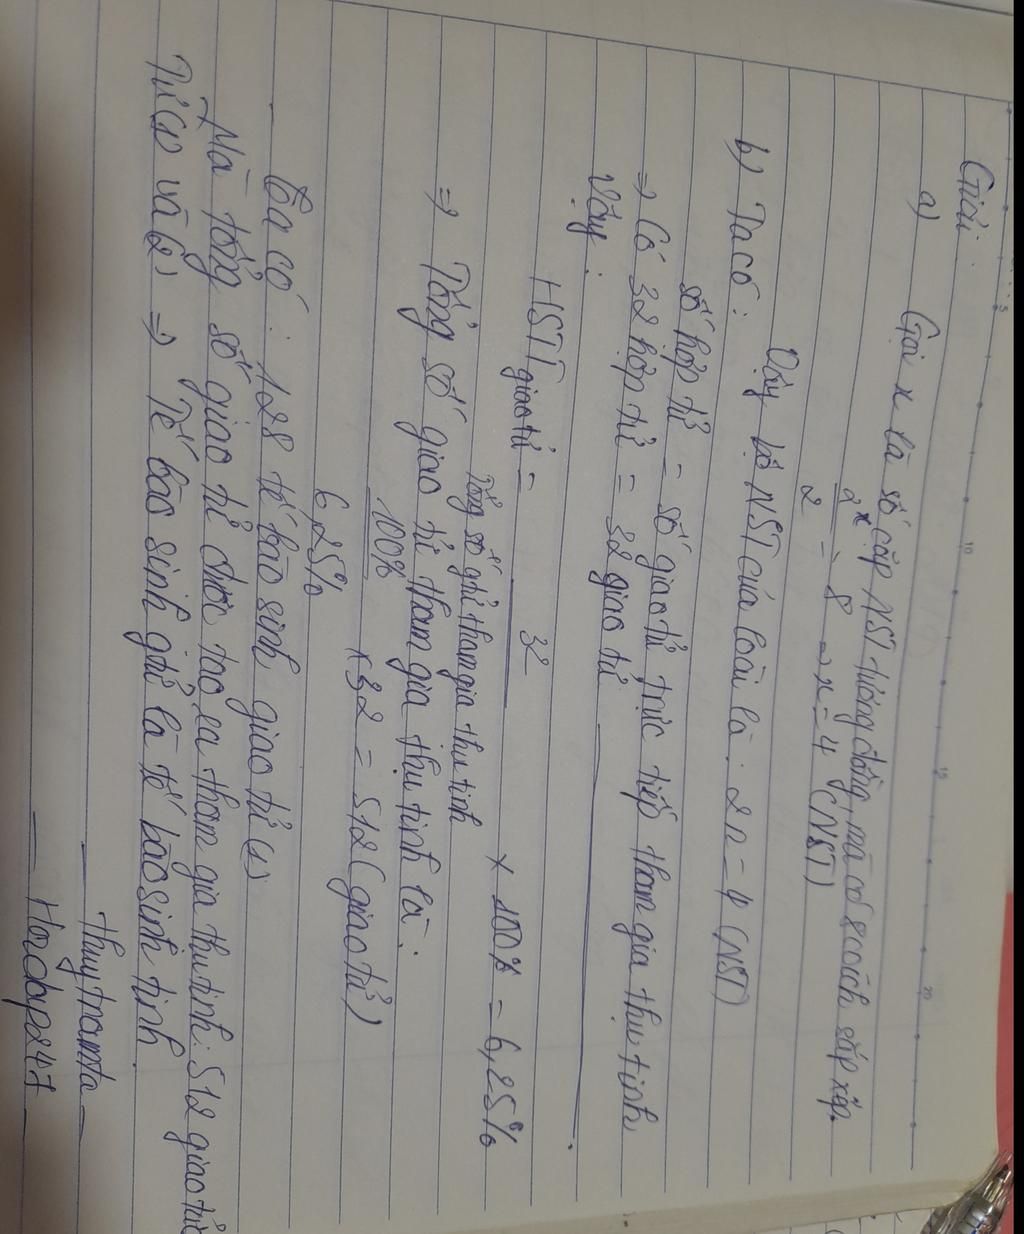 Giải:
a) Gọi x là số cặp NST tương đồng, mà có 8 cách sắp xếp.
2^x / 2 = 8 → x = 4 (NST)
Vậy bộ NST của loài là: 2n = 4 (NST)
b) Ta có:
số hợp tử = số giao tử trực tiếp tham gia thụ tinh
⇒ Có 32 hợp tử = 32 giao tử
Vậy:
HSTT giao tử = 32 / Tổng số gtử tham gia thụ tinh × 100% = 6,25%
⇒ Tổng số giao tử tham gia thụ tinh là:
100% / 6,25% × 32 = 512 (giao tử)
Ta có: 128 tế bào sinh giao tử (1)
Mà tổng số giao tử được tạo ra tham gia thụ tinh: 512 giao tử
Từ (1) và (2) ⇒ Tế bào sinh gtử là tế bào sinh tinh.
thuytramta
Hoidap247